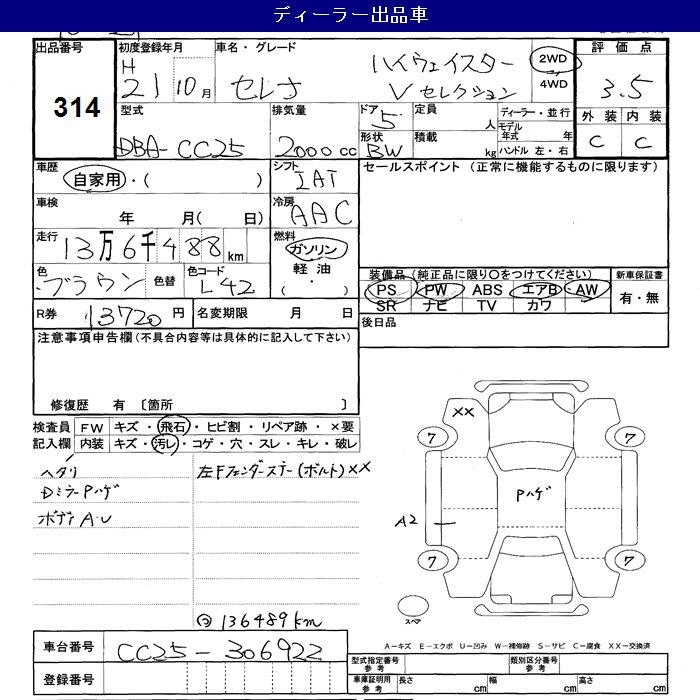 ディーラー出品車
出品番号
314
初度登録年月
H
21 10月
車名・グレード
セレナ
ハイウェイスター
Vセレクション
2WD
4WD
評価点
3.5
外装 内装
C C
型式
DBA-CC25
排気量
2000cc
ドア 5
形状 BW
定員 人
積載 kg
ディーラー・並行
モデル年式 年
ハンドル 左・右
車歴
自家用・( )
シフト
IAT
セールスポイント (正常に機能するものに限ります)
車検
年 月( 日)
冷房
AAC
走行
13万6千488km
燃料
ガソリン
軽油
( ・ )
色
ブラウン
色替
色コード
L42
装備品 (純正品に限り○をつけてください)
PS PW ABS エアB AW
SR ナビ TV カワ
新車保証書
有・無
R券 13720円
名変期限 月 日
後日品
注意事項申告欄(不具合内容等は具体的に記入して下さい)
修復歴 有 〔箇所 〕
検査員記入欄
FW キズ・飛石・ヒビ割・リペア跡・×要
内装 キズ・汚レ・コゲ・穴・スレ・キレ・破レ
ヘタリ
DミラーPハゲ
ボディA・U
左Fフェンダステー(ボルト)××
136489km
××
7 7
Pハゲ
A2
7 7
スペア
A-キズ E-エクボ U-凹み W-補修跡 S-サビ C-腐食 XX-交換済
車台番号
CC25-306922
登録番号
型式指定番号 参考
類別区分番号 参考
車庫証明用 参考
長さ cm
幅 cm
高さ cm